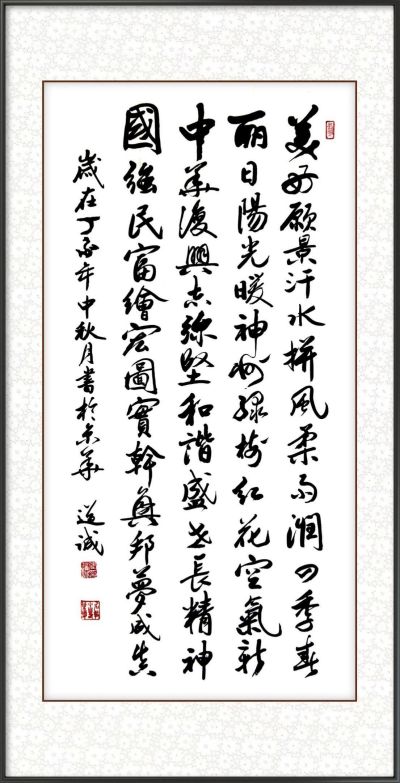 美好願景汗水拼風柔雨潤四季春
丽日陽光暖神州綠樹紅花空氣新
中華復興志弥堅和諧盛世長精神
國強民富繪宏圖實幹興邦夢成真
歲在丁酉年中秋月書於京華 道誠